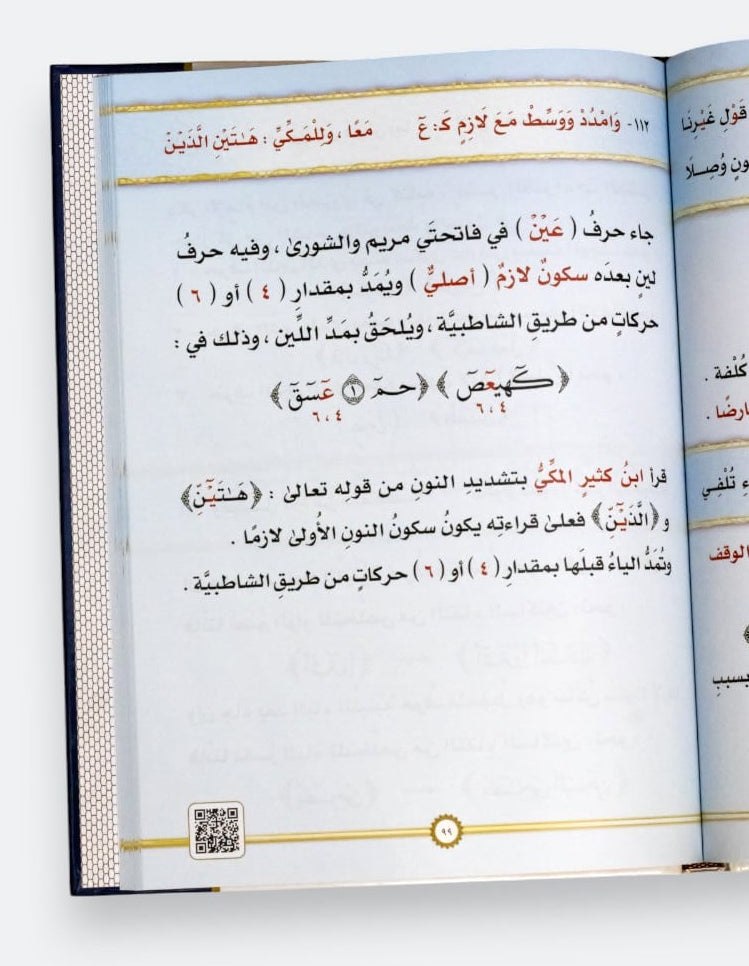 قَوْلِ غَيْرِنَا
ـونٍ وُصِـلَا
كُلْفة .
ارضًا .
ء تُلْفِي
الوقف
بسببِ
١١٢- وَامْدُدْ وَوَسِّطْ مَعَ لَازِمٍ كَـ: عَۤ مَعًا ، وَلِلْمَكِّيِّ : هَـٰتَيْنِ الَّذَيْنِ
جاء حرفُ ( عَيْنْ ) في فاتحتَي مريم والشورىٰ ، وفيه حرفُ
لينٍ بعدَه سكونٌ لازمٌ ( أصليٌّ ) ويُمَدُّ بمقدارِ ( ٤ ) أو ( ٦ )
حركاتٍ من طريقِ الشاطبيَّة ، ويُلحَقُ بمَدِّ اللِّين ، وذلك في :
﴿ كٓهيعٓصٓ ﴾ ﴿ حمٓ ١ عٓسٓقٓ ﴾
٤ ، ٦ ٤ ، ٦
قرأ ابنُ كثيرٍ المكِّيُّ بتشديدِ النونِ من قولِه تعالىٰ : ﴿هَـٰتَيْنِّ﴾
و﴿الَّذَيْنِّ﴾ فعلىٰ قراءتِه يكونُ سكونُ النونِ الأُولىٰ لازمًا .
وتُمَدُّ الياءُ قبلَها بمقدارِ ( ٤ ) أو ( ٦ ) حركاتٍ من طريقِ الشاطبيَّة .
٩٩